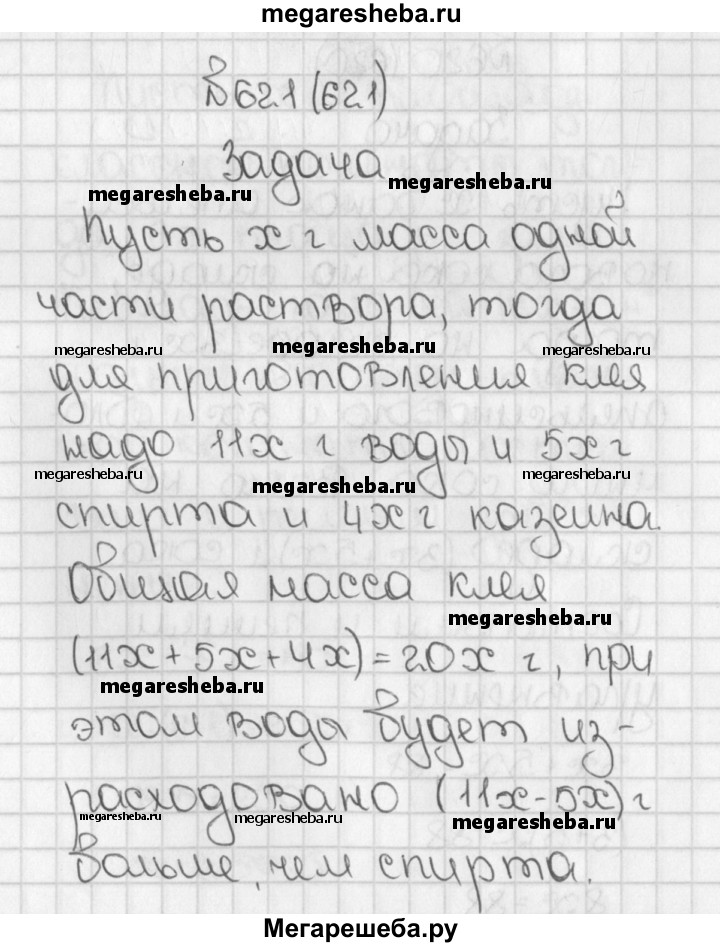 megaresheba.ru
№621 (621)
Задача
megaresheba.ru megaresheba.ru
Пусть x г масса одной
части раствора, тогда
megaresheba.ru megaresheba.ru megaresheba.ru
для приготовления клея
надо 11x г воды и 5x г
megaresheba.ru megaresheba.ru megaresheba.ru
спирта и 4x г казеина.
Общая масса клея
megaresheba.ru
(11x + 5x + 4x) = 20x г, при
megaresheba.ru
этом воды будет из-
расходовано (11x - 5x) г
megaresheba.ru megaresheba.ru megaresheba.ru
больше, чем спирта.
Мегарешеба.ру